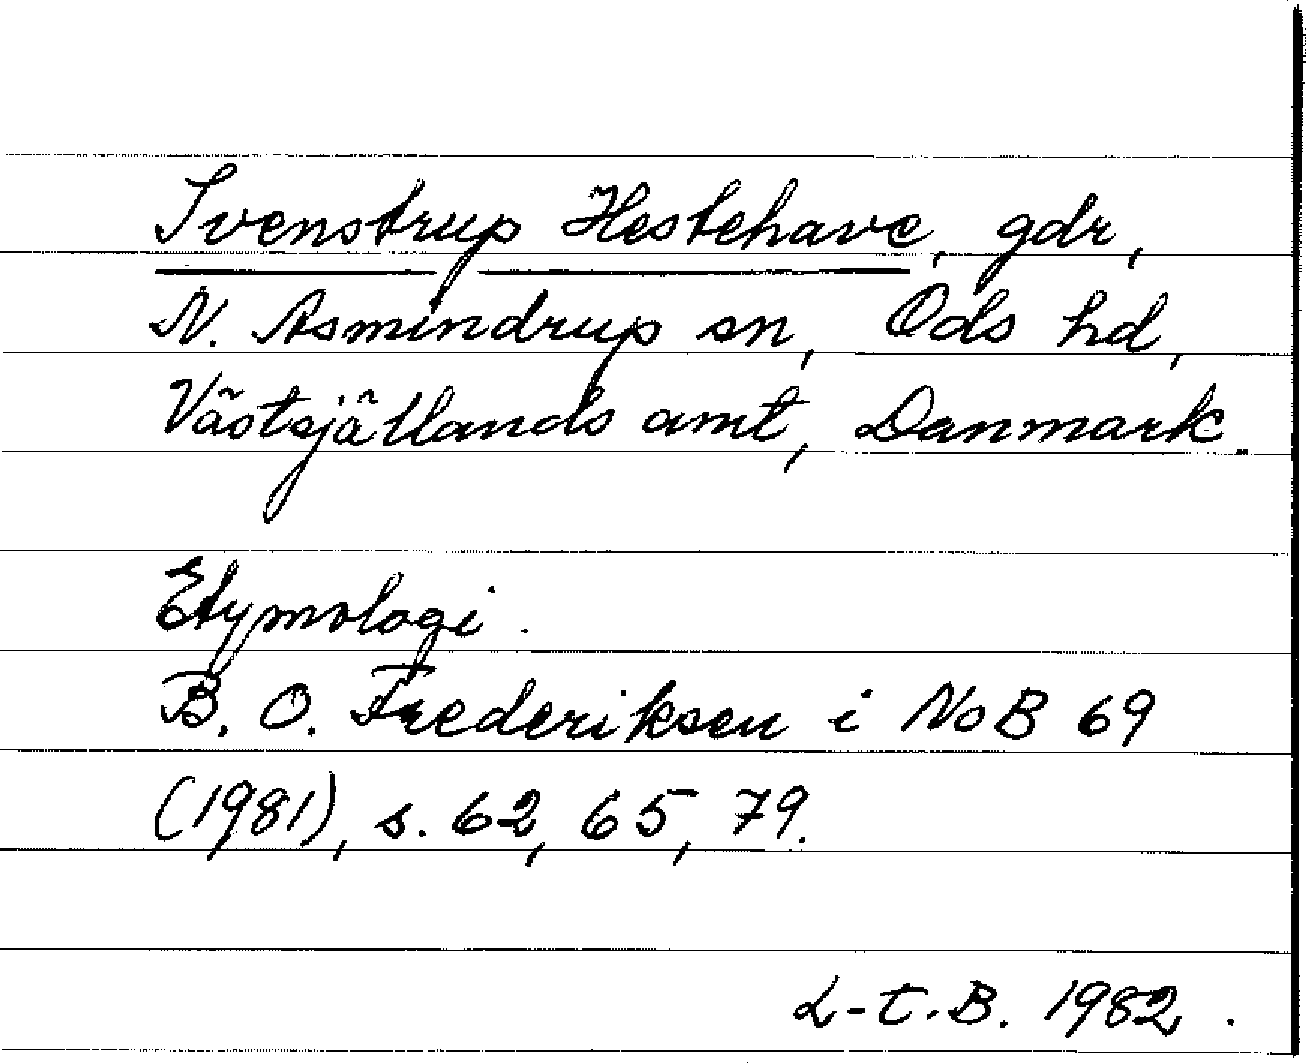 Svenstrup Hestehave, gdr,
N. Asmindrup sn, Ods hd,
Västsjällands amt, Danmark.
Etymologi.
B. O. Frederiksen i NoB 69
(1981), s. 62, 65, 79.
L-t.B. 1982.